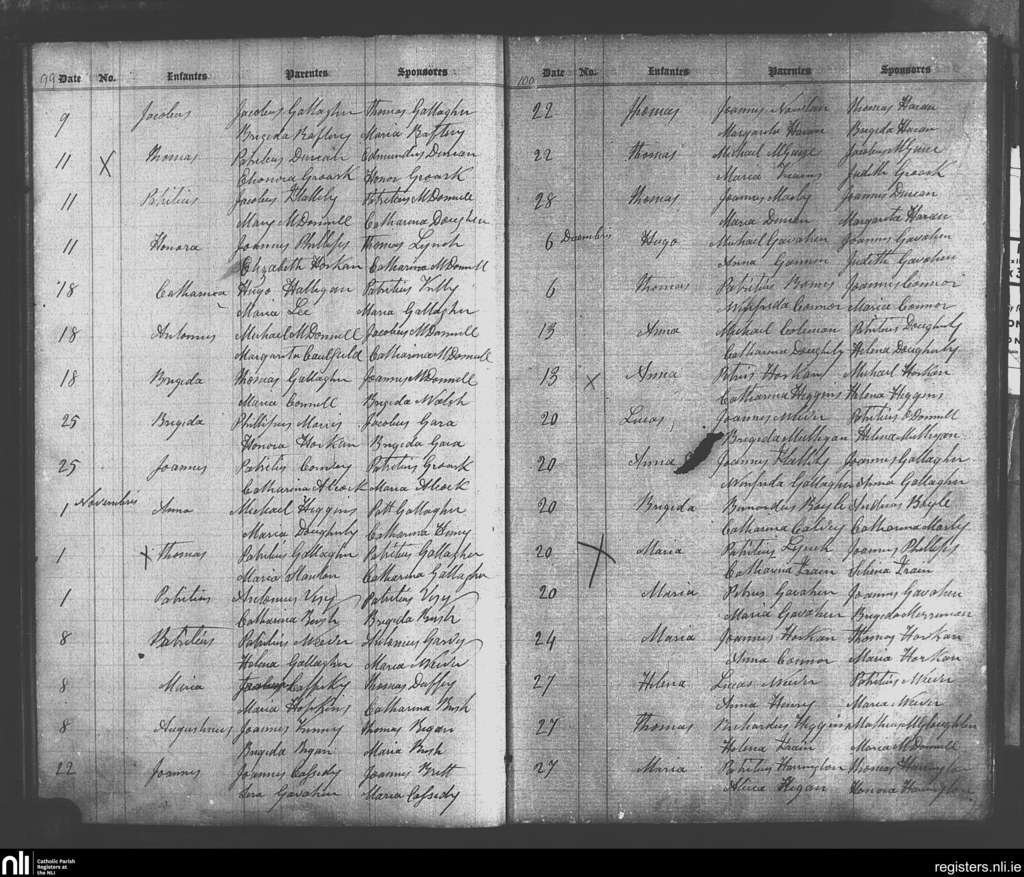 99 Date No. Infantes Parentes Sponsores
9 Jacobus Jacobus Gallagher Thomas Gallagher
Brigida Raftery Maria Raftery
11 X Thomas Patritius Duncan Edmundus Duncan
Eleonora Groark Honor Groark
11 Patritius Jacobus Flattely Patritius McDonnell
Mary McDonnell Catharina Dougher
11 Honora Joannes Phillips Thomas Lynch
Elizabeth Horkan Catharina McDonnell
18 Catharina Hugo Halligan Patritius
Maria Lee Maria Gallagher
18 Antonius Michael McDonnell Jacobus McDonnell
Margarita Caulfield Catharina McDonnell
18 Brigida Thomas Gallagher Joannes McDonnell
Maria Connell Brigida Walsh
25 Brigida Phillipus Morris Jacobus Gara
Honora Horkan Brigida Gara
25 Joannes Patritius Conroy Patritius Groark
Catharina Alcock Maria Alcock
1 Novembris Anna Michael Higgins Patt Gallagher
Maria Dougherty Catharina
1 X Thomas Patritius Gallagher Patritius Gallagher
Maria Stanton Catharina Gallagher
1 Patritius Antonius Patritius
Catharina Rush Brigida Rush
8 Patritius Patritius Antonius Garvey
Helena Gallagher Maria
8 Maria Cafferky Thomas Duffey
Maria Hopkins Catharina Rush
8 Augustinus Joannes Thomas Regan
Brigida Regan Maria Rush
22 Joannes Joannes Cassidy Joannes Brett
Gavahen Maria Cassidy
100 Date No. Infantes Parentes Sponsores
22 Thomas Joannes Thomas Haran
Margarita Haran Brigida Haran
22 Thomas Michael Jacobus
Maria Judith Groark
28 Thomas Joannes Joannes Duncan
Maria Duncan Margarita Haran
6 Decembris Hugo Michael Gavahen Joannes Gavahen
Anna Gannon Judith Gavahen
6 Thomas Patritius Joannes Connor
Winifrida Connor Maria Connor
13 Anna Michael Coleman Patritius Dougherty
Catharina Dougherty Helena Dougherty
13 X Anna Petrus Horkan Michael Horkan
Catharina Higgins Helena Higgins
20 Lucas Joannes Patritius O'Donnell
Brigida Mulligan Helena Mulligan
20 Anna Joannes Flattely Joannes Gallagher
Winifrida Gallagher Anna Gallagher
20 Brigida Bernardus Boyle Andreas Boyle
Catharina Calvey Catharina
20 X Maria Patritius Lynch Joannes Phillips
Catharina Frain Helena Frain
20 Maria Petrus Gavahen Joannes Gavahen
Maria Gavahen Brigida Merriman
24 Maria Joannes Horkan Thomas Horkan
Anna Connor Maria Horkan
27 Helena Lucas Patritius
Anna Henry Maria
27 Thomas Richardus Higgins Mathias McLoughlin
Helena Frain Maria McDonnell
27 Maria Patritius Harrington Thomas Harrington
Regan Honora Harrington
nli
Catholic Parish
Registers at
the NLI
registers.nli.ie